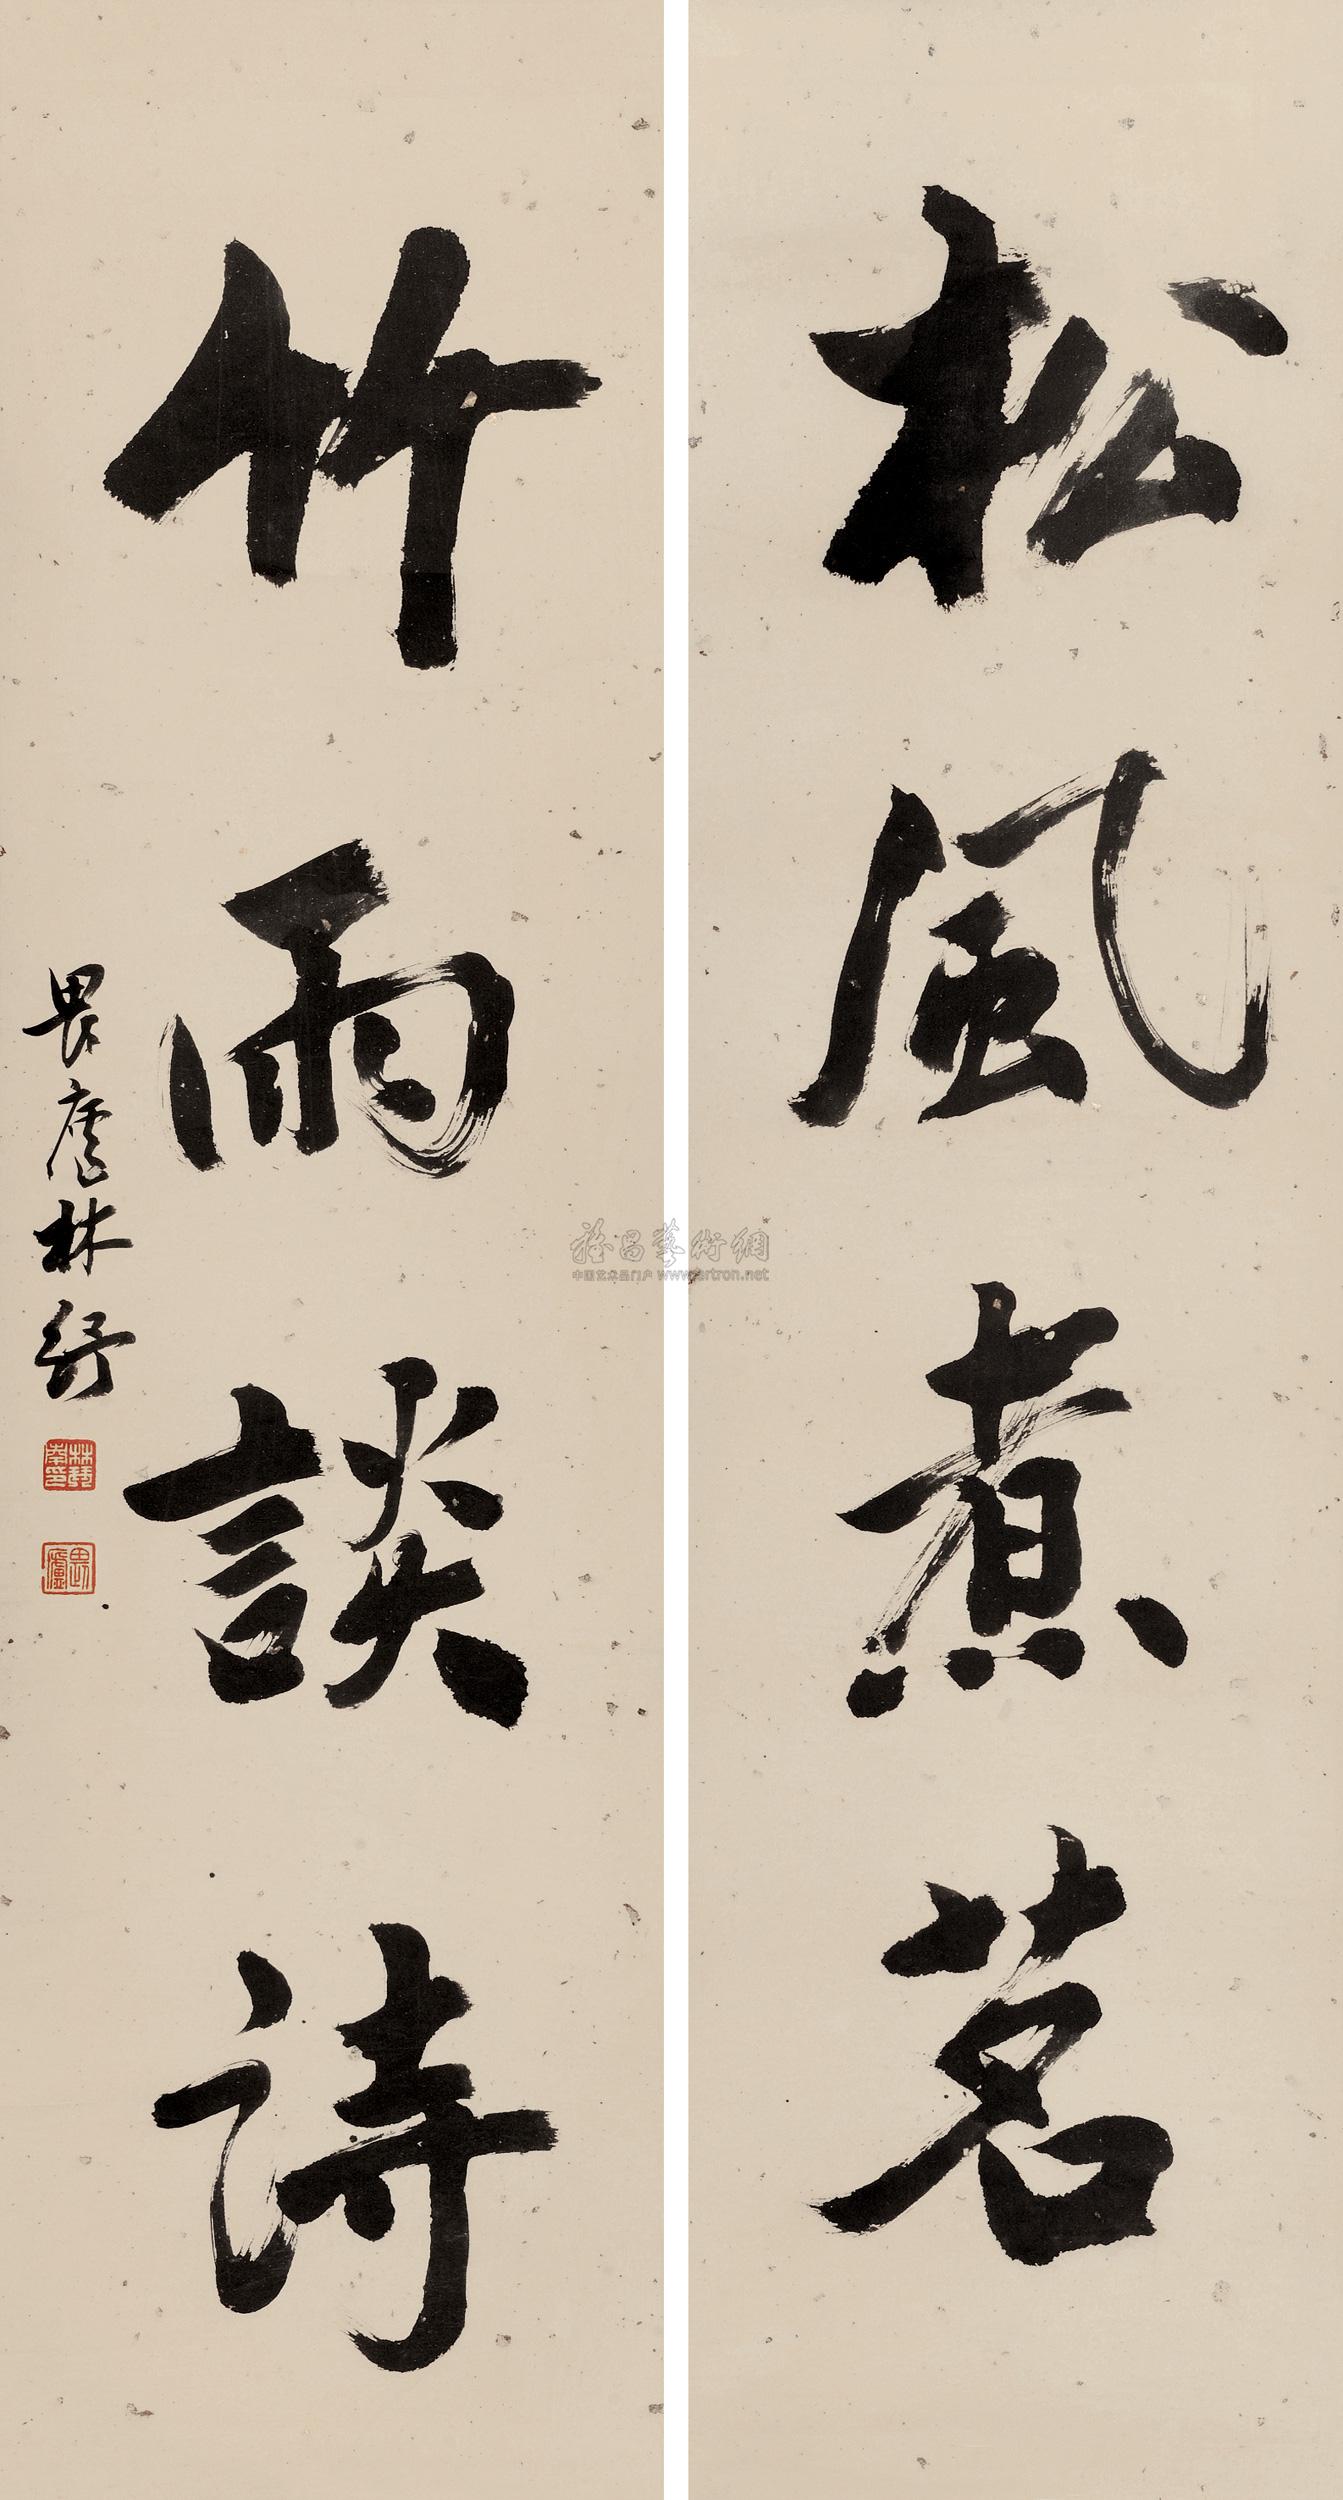 松風煮茗
竹雨談詩
畏廬林紓
林琴南印
畏廬
雅昌藝術網
中国艺术品门户 www.artron.net